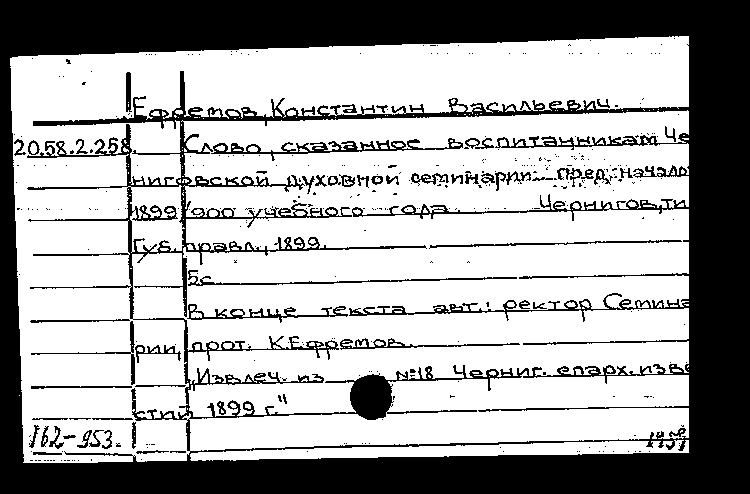 Ефремов, Константин Васильевич.
20.58.2.258. Слово, сказанное воспитанникам Че
ниговской духовной семинарии пред начало
1899/900 учебного года. Чернигов, ти
Губ. правл., 1899.
5с
В конце текста авт.: ректор Семина
рии, прот. К.Ефремов.
„Извлеч. из №18 Черниг. епарх. изве
стий 1899 г."
162-953.